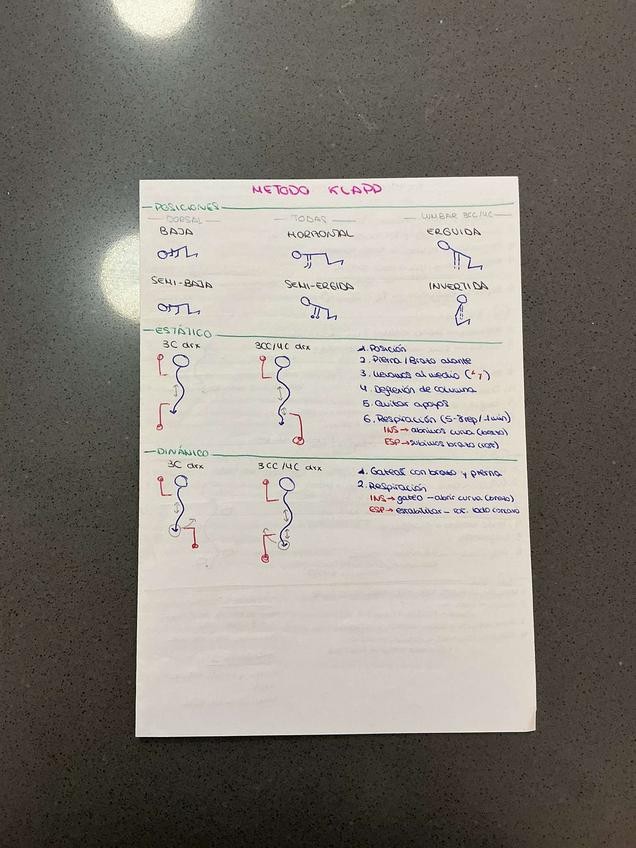 METODO KLAPP
POSICIONES
DORSAL
TODAS
LUMBAR 3CC/4C
BAJA
HORIZONTAL
ERGUIDA
SEMI-BAJA
SEMI-ERGIDA
INVERTIDA
ESTÁTICO
3C drx
3CC/4C drx
1. Posición
2. Pierna / Brazo alante
3. Llevamos al medio
4. Deflexión de columna
5. Quitar apoyos
6. Respiración (5-8rep/1min)
INS → abrimos curva (brazo)
ESP → subimos brazo
DINÁNICO
3C drx
3CC/4C drx
1. Gateas con brazo y pierna
2. Respiración
INS → gateo - abrir curva (brazo)
ESP → estabilizar - lado concavo